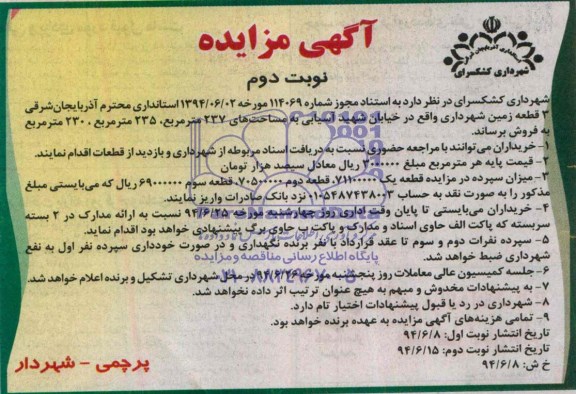 آگهی مزایده
نوبت دوم
شهرداری کشکسرای
شهرداری کشکسرای در نظر دارد به استناد مجوز شماره ۱۱۴۰۶۹ مورخه ۱۳۹۴/۰۶/۰۲ استانداری محترم آذربایجان‌شرقی
۳ قطعه زمین شهرداری واقع در خیابان شهید آسیابی به مساحت‌های ۲۳۷ مترمربع، ۲۳۵ مترمربع ، ۲۳۰ مترمربع
به فروش برساند.
۱- خریداران می‌توانند با مراجعه حضوری نسبت به دریافت اسناد مربوطه از شهرداری و بازدید از قطعات اقدام نمایند.
۲- قیمت پایه هر مترمربع مبلغ ۳۰۰۰۰۰۰ ریال معادل سیصد هزار تومان
۳- میزان سپرده در مزایده قطعه یک ۷۱۱۰۰۰۰۰، قطعه دوم ۷۰۵۰۰۰۰۰، قطعه سوم ۶۹۰۰۰۰۰۰ ریال که می‌بایستی مبلغ
مذکور را به صورت نقد به حساب ۰۱۰۵۴۸۷۴۳۸۰۰۲ نزد بانک صادرات واریز نمایند.
۴- خریداران می‌بایستی تا پایان وقت اداری روز چهارشنبه مورخه ۹۴/۶/۲۵ نسبت به ارائه مدارک در ۲ بسته
سربسته که پاکت الف حاوی اسناد و مدارک و پاکت ب حاوی برگ پیشنهادی خواهد بود اقدام نماید.
۵- سپرده نفرات دوم و سوم تا عقد قرارداد با نفر برنده نگهداری و در صورت خودداری سپرده نفر اول به نفع
شهرداری ضبط خواهد شد.
پایگاه اطلاع رسانی مناقصه و مزایده
۶- جلسه کمیسیون عالی معاملات روز پنجشنبه مورخه ۹۴/۶/۲۶ در محل شهرداری تشکیل و برنده اعلام خواهد شد.
۷- به پیشنهادات مخدوش و مبهم به هیچ عنوان ترتیب اثر داده نخواهد شد.
۸- شهرداری در رد یا قبول پیشنهادات اختیار تام دارد.
۹- تمامی هزینه‌های آگهی مزایده به عهده برنده خواهد بود.
تاریخ انتشار نوبت اول: ۹۴/۶/۸
تاریخ انتشار نوبت دوم: ۹۴/۶/۱۵
خ ش: ۹۴/۶/۸
پرچمی - شهردار